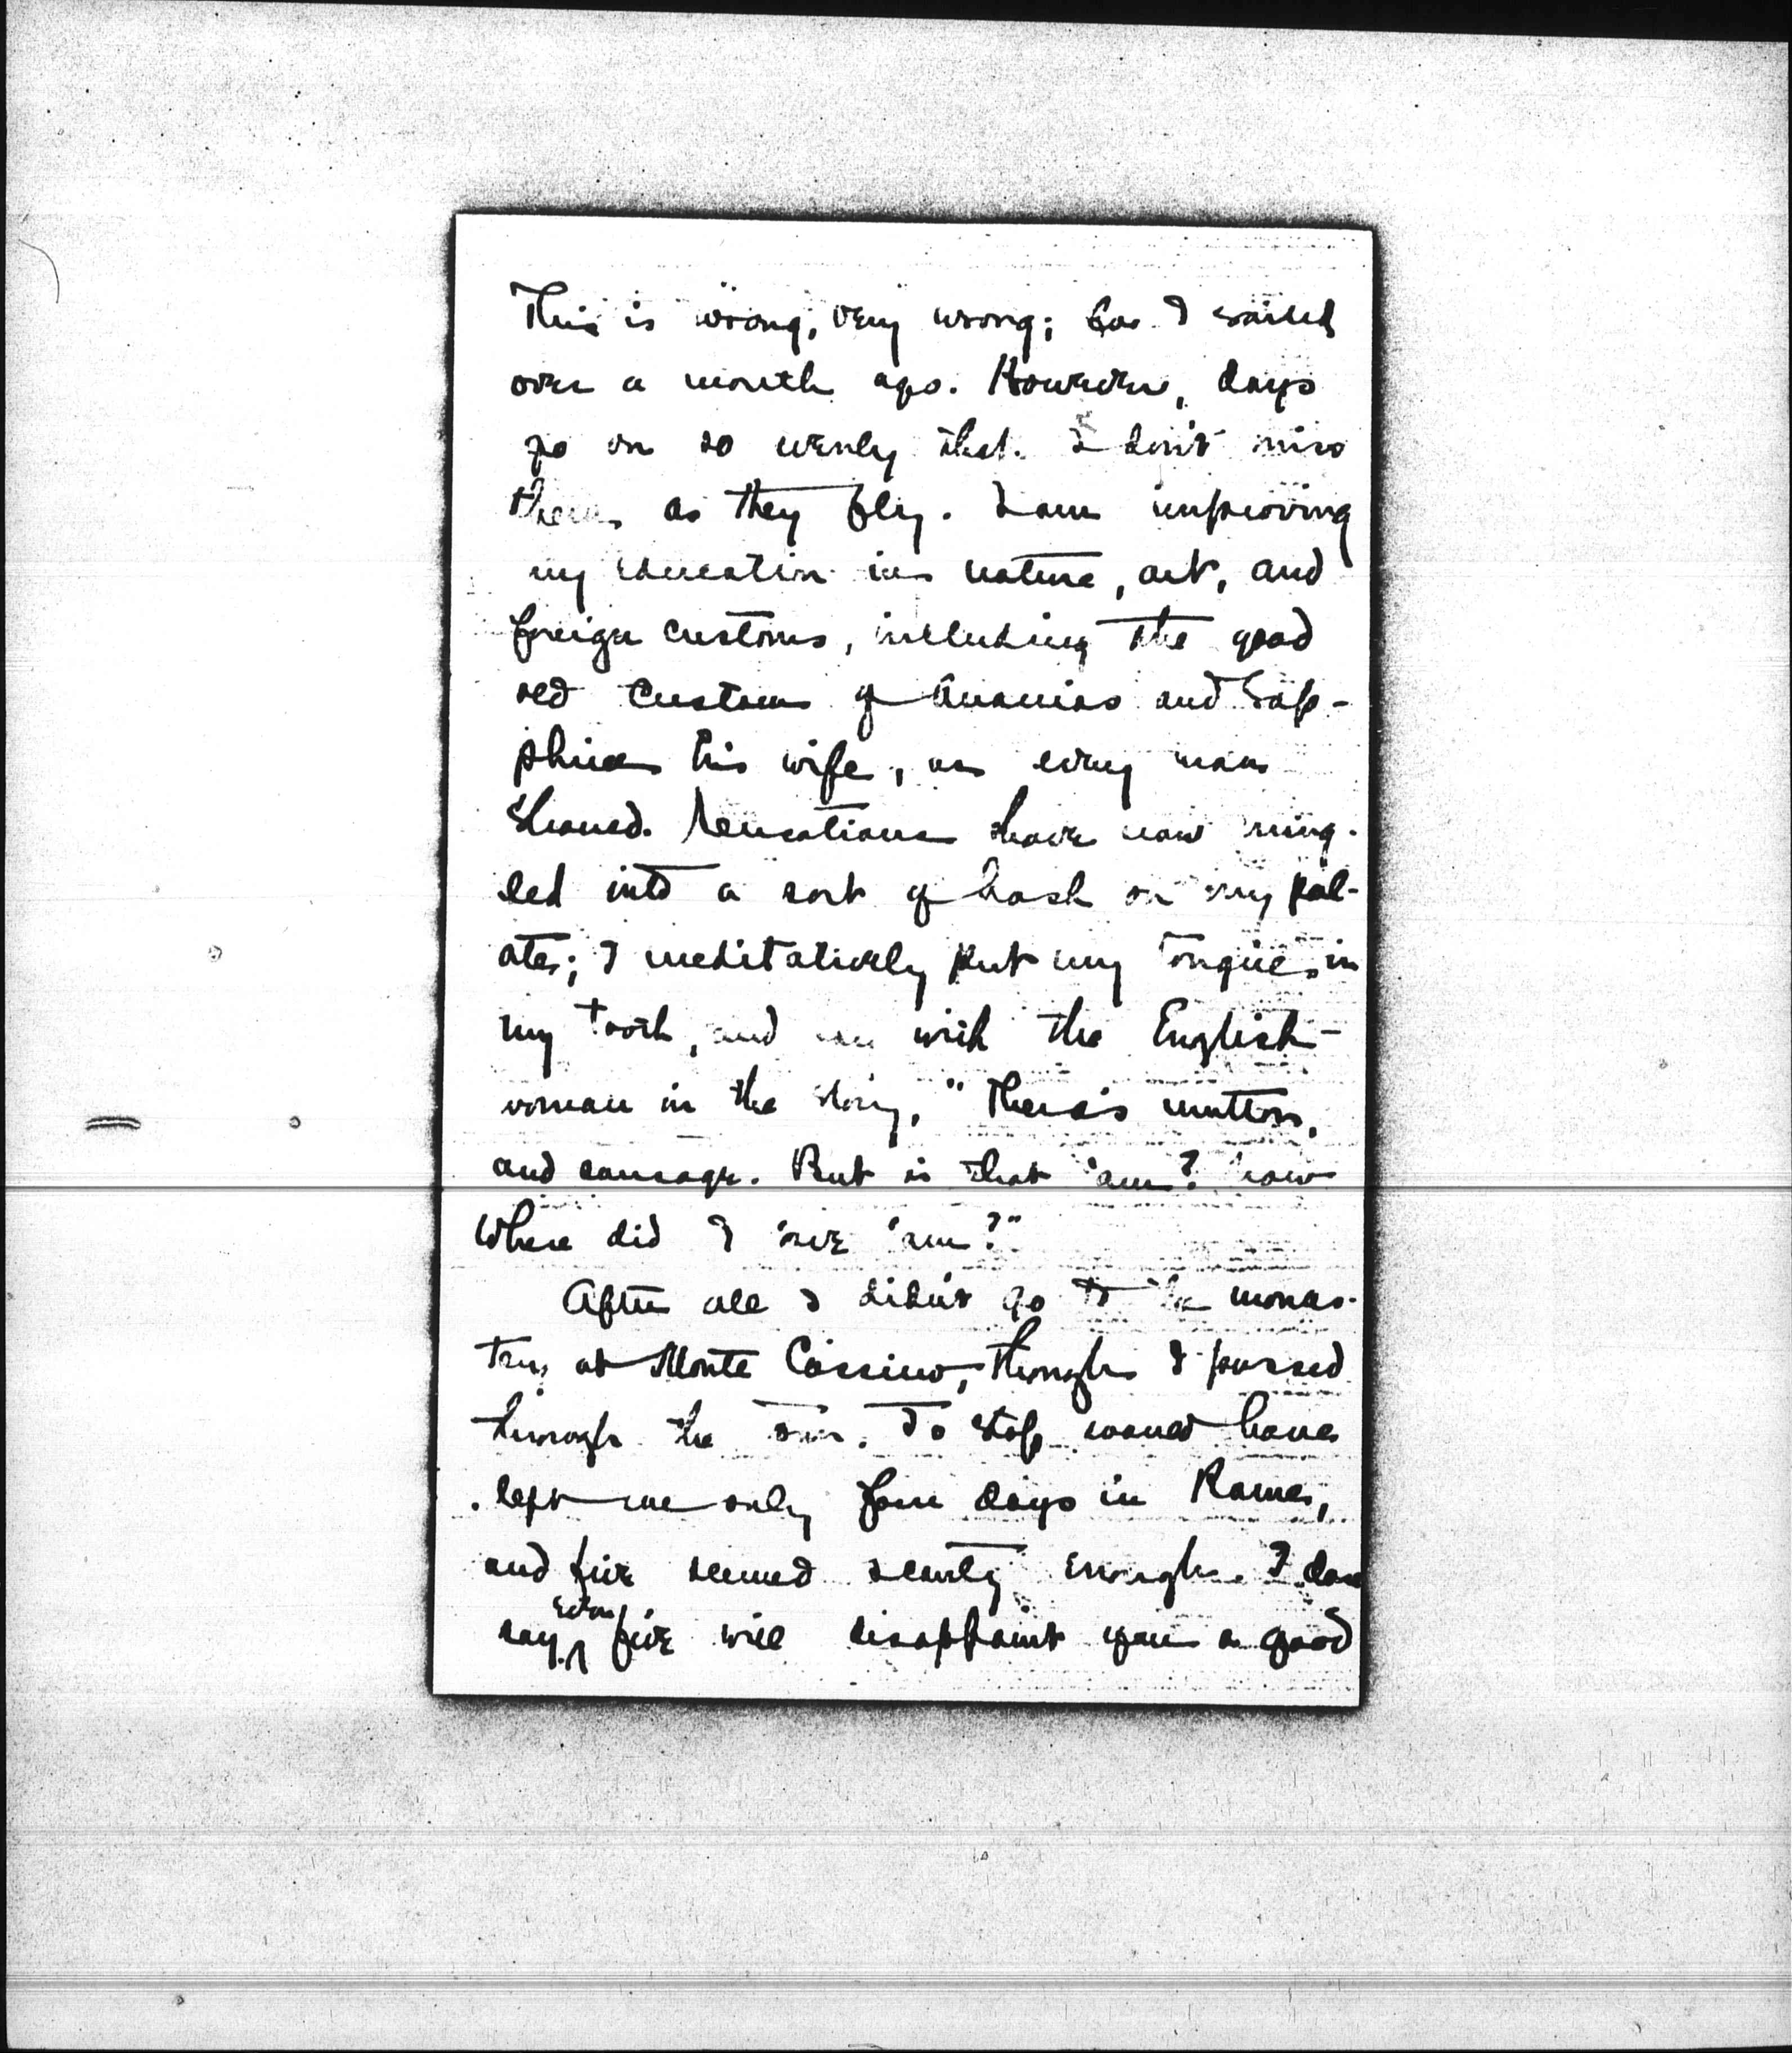 This is wrong, very wrong; for I sailed
over a month ago. However, days
go on so evenly that I don't miss
them as they fly. I am improving
my education in nature, art, and
foreign customs, including the good
old custom of Ananias and Sap-
phira his wife, as every man
should. Sensations have now ming-
led into a sort of hash on my pal-
ate; I meditatively put my tongue in
my tooth, and with the English-
woman in the story, "There's mutton,
and sausage. But is that 'am? Now
where did I 'ave 'am?"
After all I didn't go to the monas-
tery at Monte Cassino, though I passed
through the town. To stop would have
left me only four days in Rome,
and five seemed scanty enough. I dare
say even five will disappoint you a good